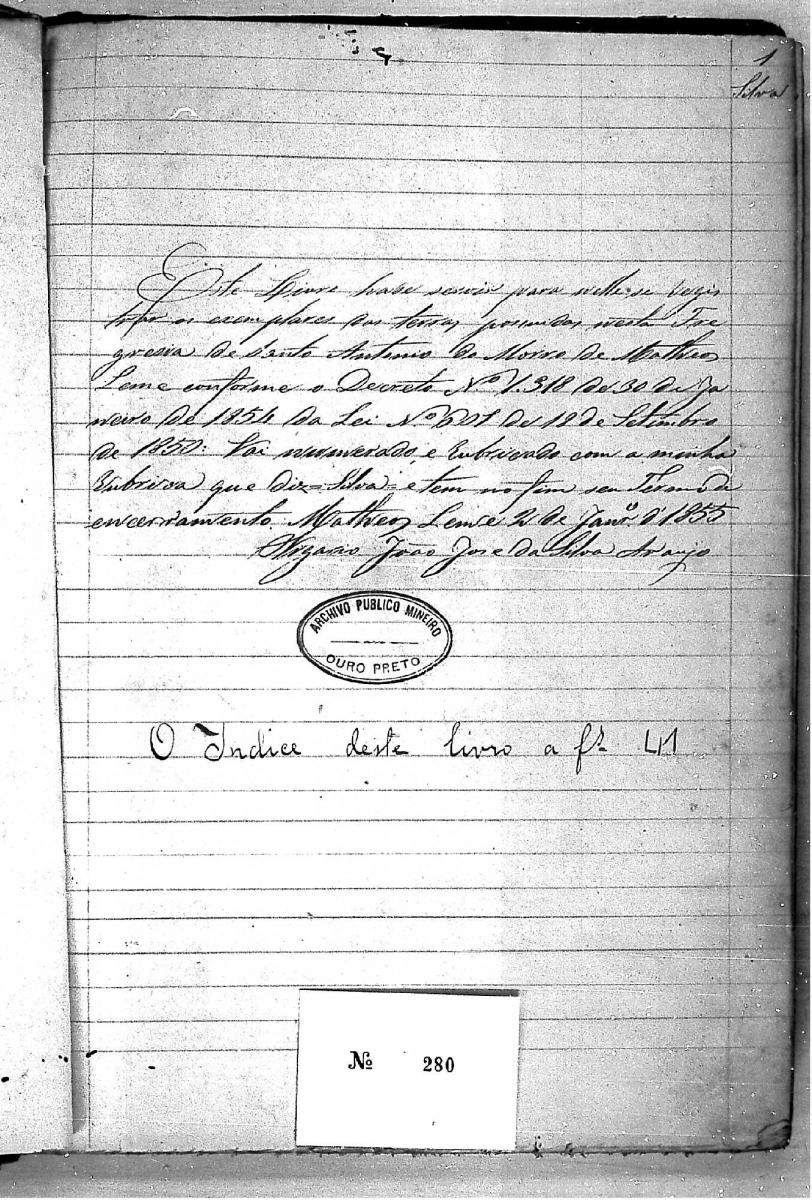 1
Silva
Este Livro hade servir para nelle se regis
trar os exemplares das terras possuidas nesta Fre
guesia de Santo Antonio do Morro de Matheos
Leme conforme o Decreto Nº 1.318 de 30 de Ja
neiro de 1854 da Lei Nº 601 de 18 de Setembro
de 1850: Vai numerado, e rubricado com a minha
rubrica que diz = Silva = e tem no fim seu Termo de
encerramento. Matheos Leme 2 de Janrº d'1855
O Vigario João Jose da Silva Araujo
ARCHIVO PUBLICO MINEIRO
OURO PRETO
O Indice deste livro a fs 41
Nº 280